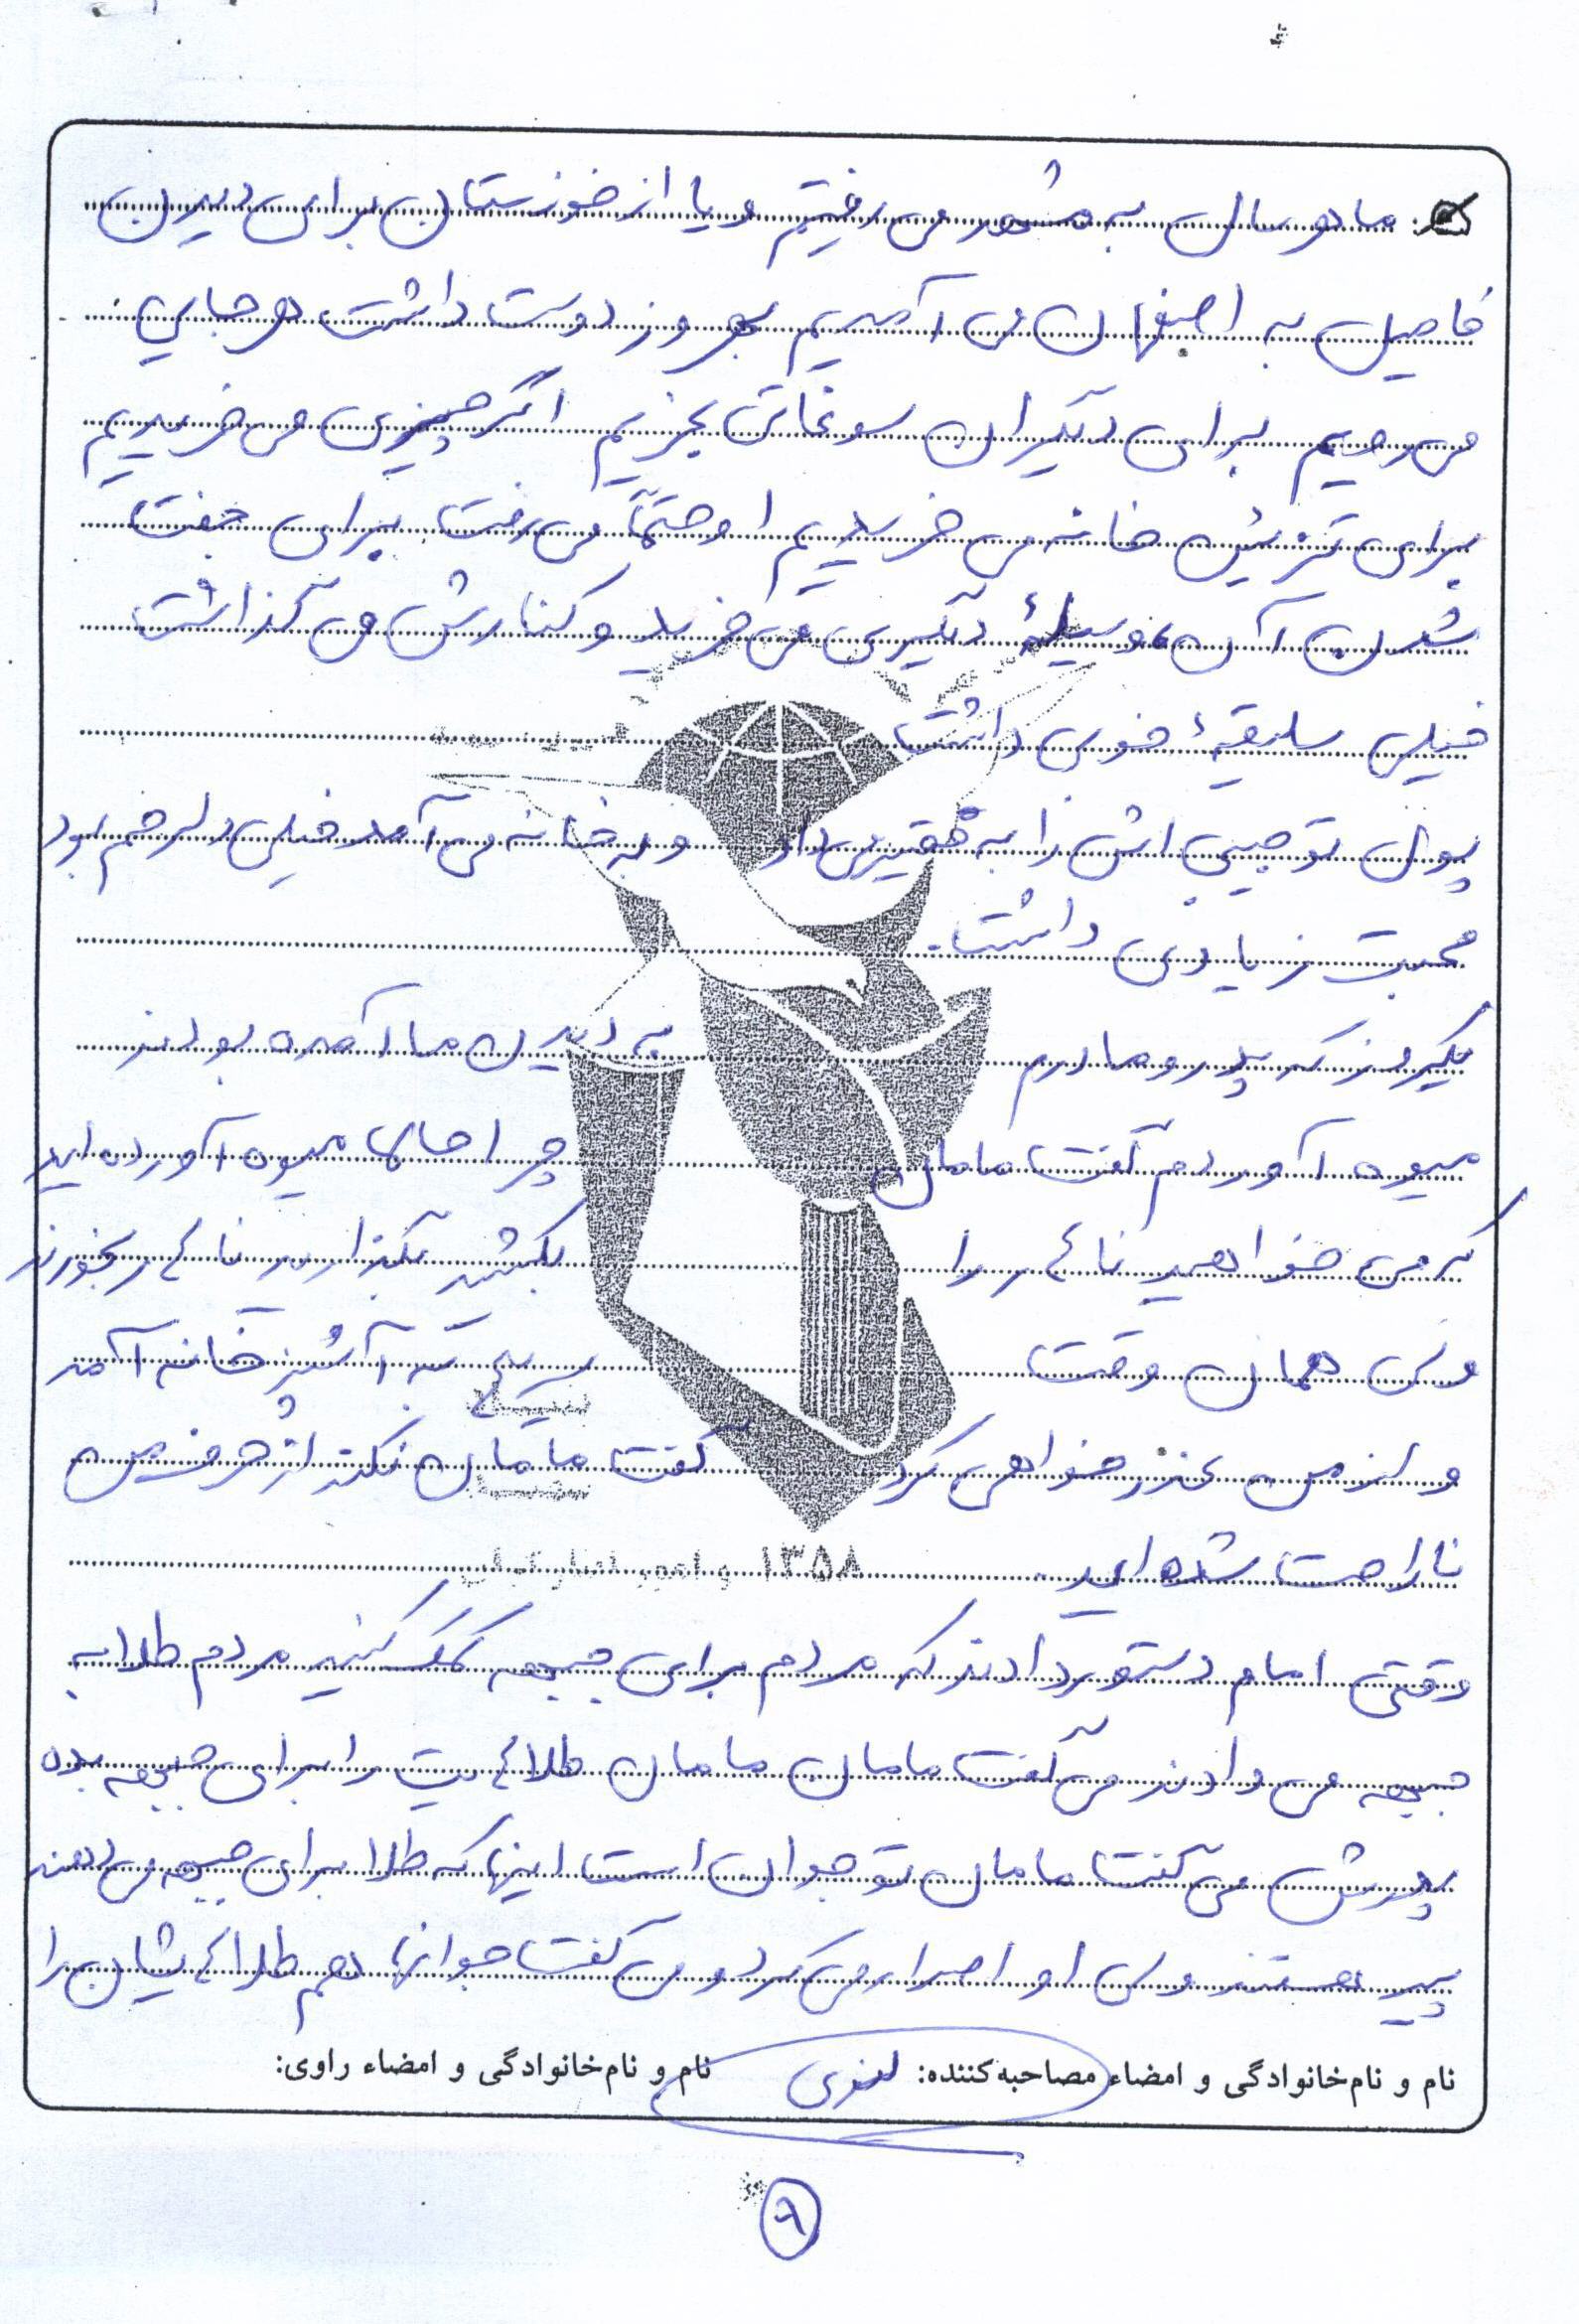 ما هر سال به مشهد می رفتیم و یا از خوزستان برای دیدن
فامیل به اصفهان می آمدیم بهروز دوست داشت هر جایی
می رویم برای دیگران سوغاتی بخریم اگر چیزی می خریدیم
برای تزئین خانه می خریدیم او حتماً می رفت برای جفت
شدن آن وسیلهٔ دیگری می خرید و کنارش می گذاشت
خیلی سلیقهٔ خوبی داشت
پول توجیبی اش را به فقیر می داد و به خانه می آمد خیلی دلرحم بود
محبت زیادی داشت.
یکروز که پدر و مادرم به دیدن ما آمده بودند
میوه آوردم گفت مامان چرا حالا میوه آورده اید
که می خواهید ناهار را بکشید بگذارید ناهار بخورند
ولی همان وقت سریع به آشپزخانه آمد
و از من عذرخواهی کرد گفت مامان نکند از حرف من
ناراحت شده اید
۱۳۵۸
وقتی امام دستور دادند که مردم برای جبهه کمک کنید مردم طلا به
جبهه می دادند می گفت مامان مامان طلاهایت را برای جبهه بده
پدرش می گفت مامان تو جوان است اینها که طلا برای جبهه می دهند
پیر هستند ولی او اصرار می کرد و می گفت جوانها هم طلاهایشان را
نام و نام‌خانوادگی و امضاء مصاحبه‌کننده: نام و نام‌خانوادگی و امضاء راوی:
۹